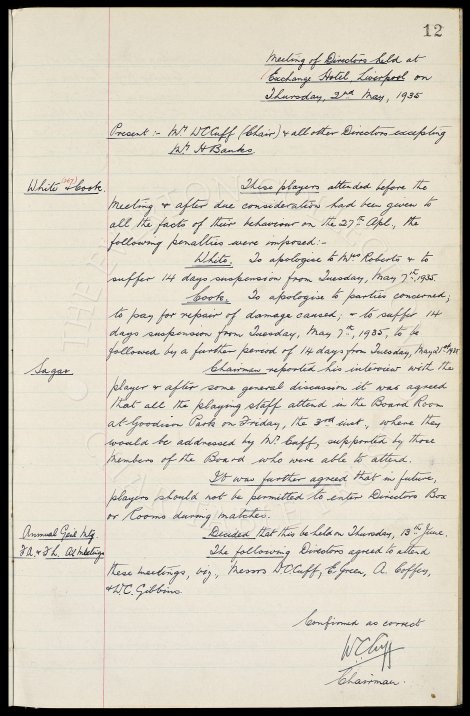 12
Meeting of Directors held at
Exchange Hotel, Liverpool on
Thursday, 2nd May, 1935
Present :- Mr W.C. Cuff (Chair) & all other Directors excepting
Mr H Banks
White & Cook. These players attended before the
Meeting & after due consideration had been given to
all the facts of their behaviour on the 27th Apl., the
following penalties were imposed:-
White. To apologise to Mrs Roberts & to
suffer 14 days suspension from Tuesday, May 7th, 1935.
Cook. To apologise to parties concerned;
to pay for repair of damage caused; & to suffer 14
days suspension from Tuesday, May 7th, 1935, to be
followed by a further period of 14 days from Tuesday, May 21st 1935
Sagar Chairman reported his interview with the
player & after some general discussion it was agreed
that all the playing staff attend in the Board Room
at Goodison Park on Friday, the 3rd inst., where they
would be addressed by Mr. Cuff, supported by those
members of the Board who were able to attend.
It was further agreed that in future,
players should not be permitted to enter Directors Box
or Rooms during matches.
Annual Genl Mtg. Decided that this be held on Thursday, 13th June.
F.A. & F.L. Al Meetings The following Directors agreed to attend
these meetings, viz, Messrs W.C. Cuff, E. Green, A. Coffey,
& W.C. Gibbins.
Confirmed as correct
W.C. Cuff
Chairman.